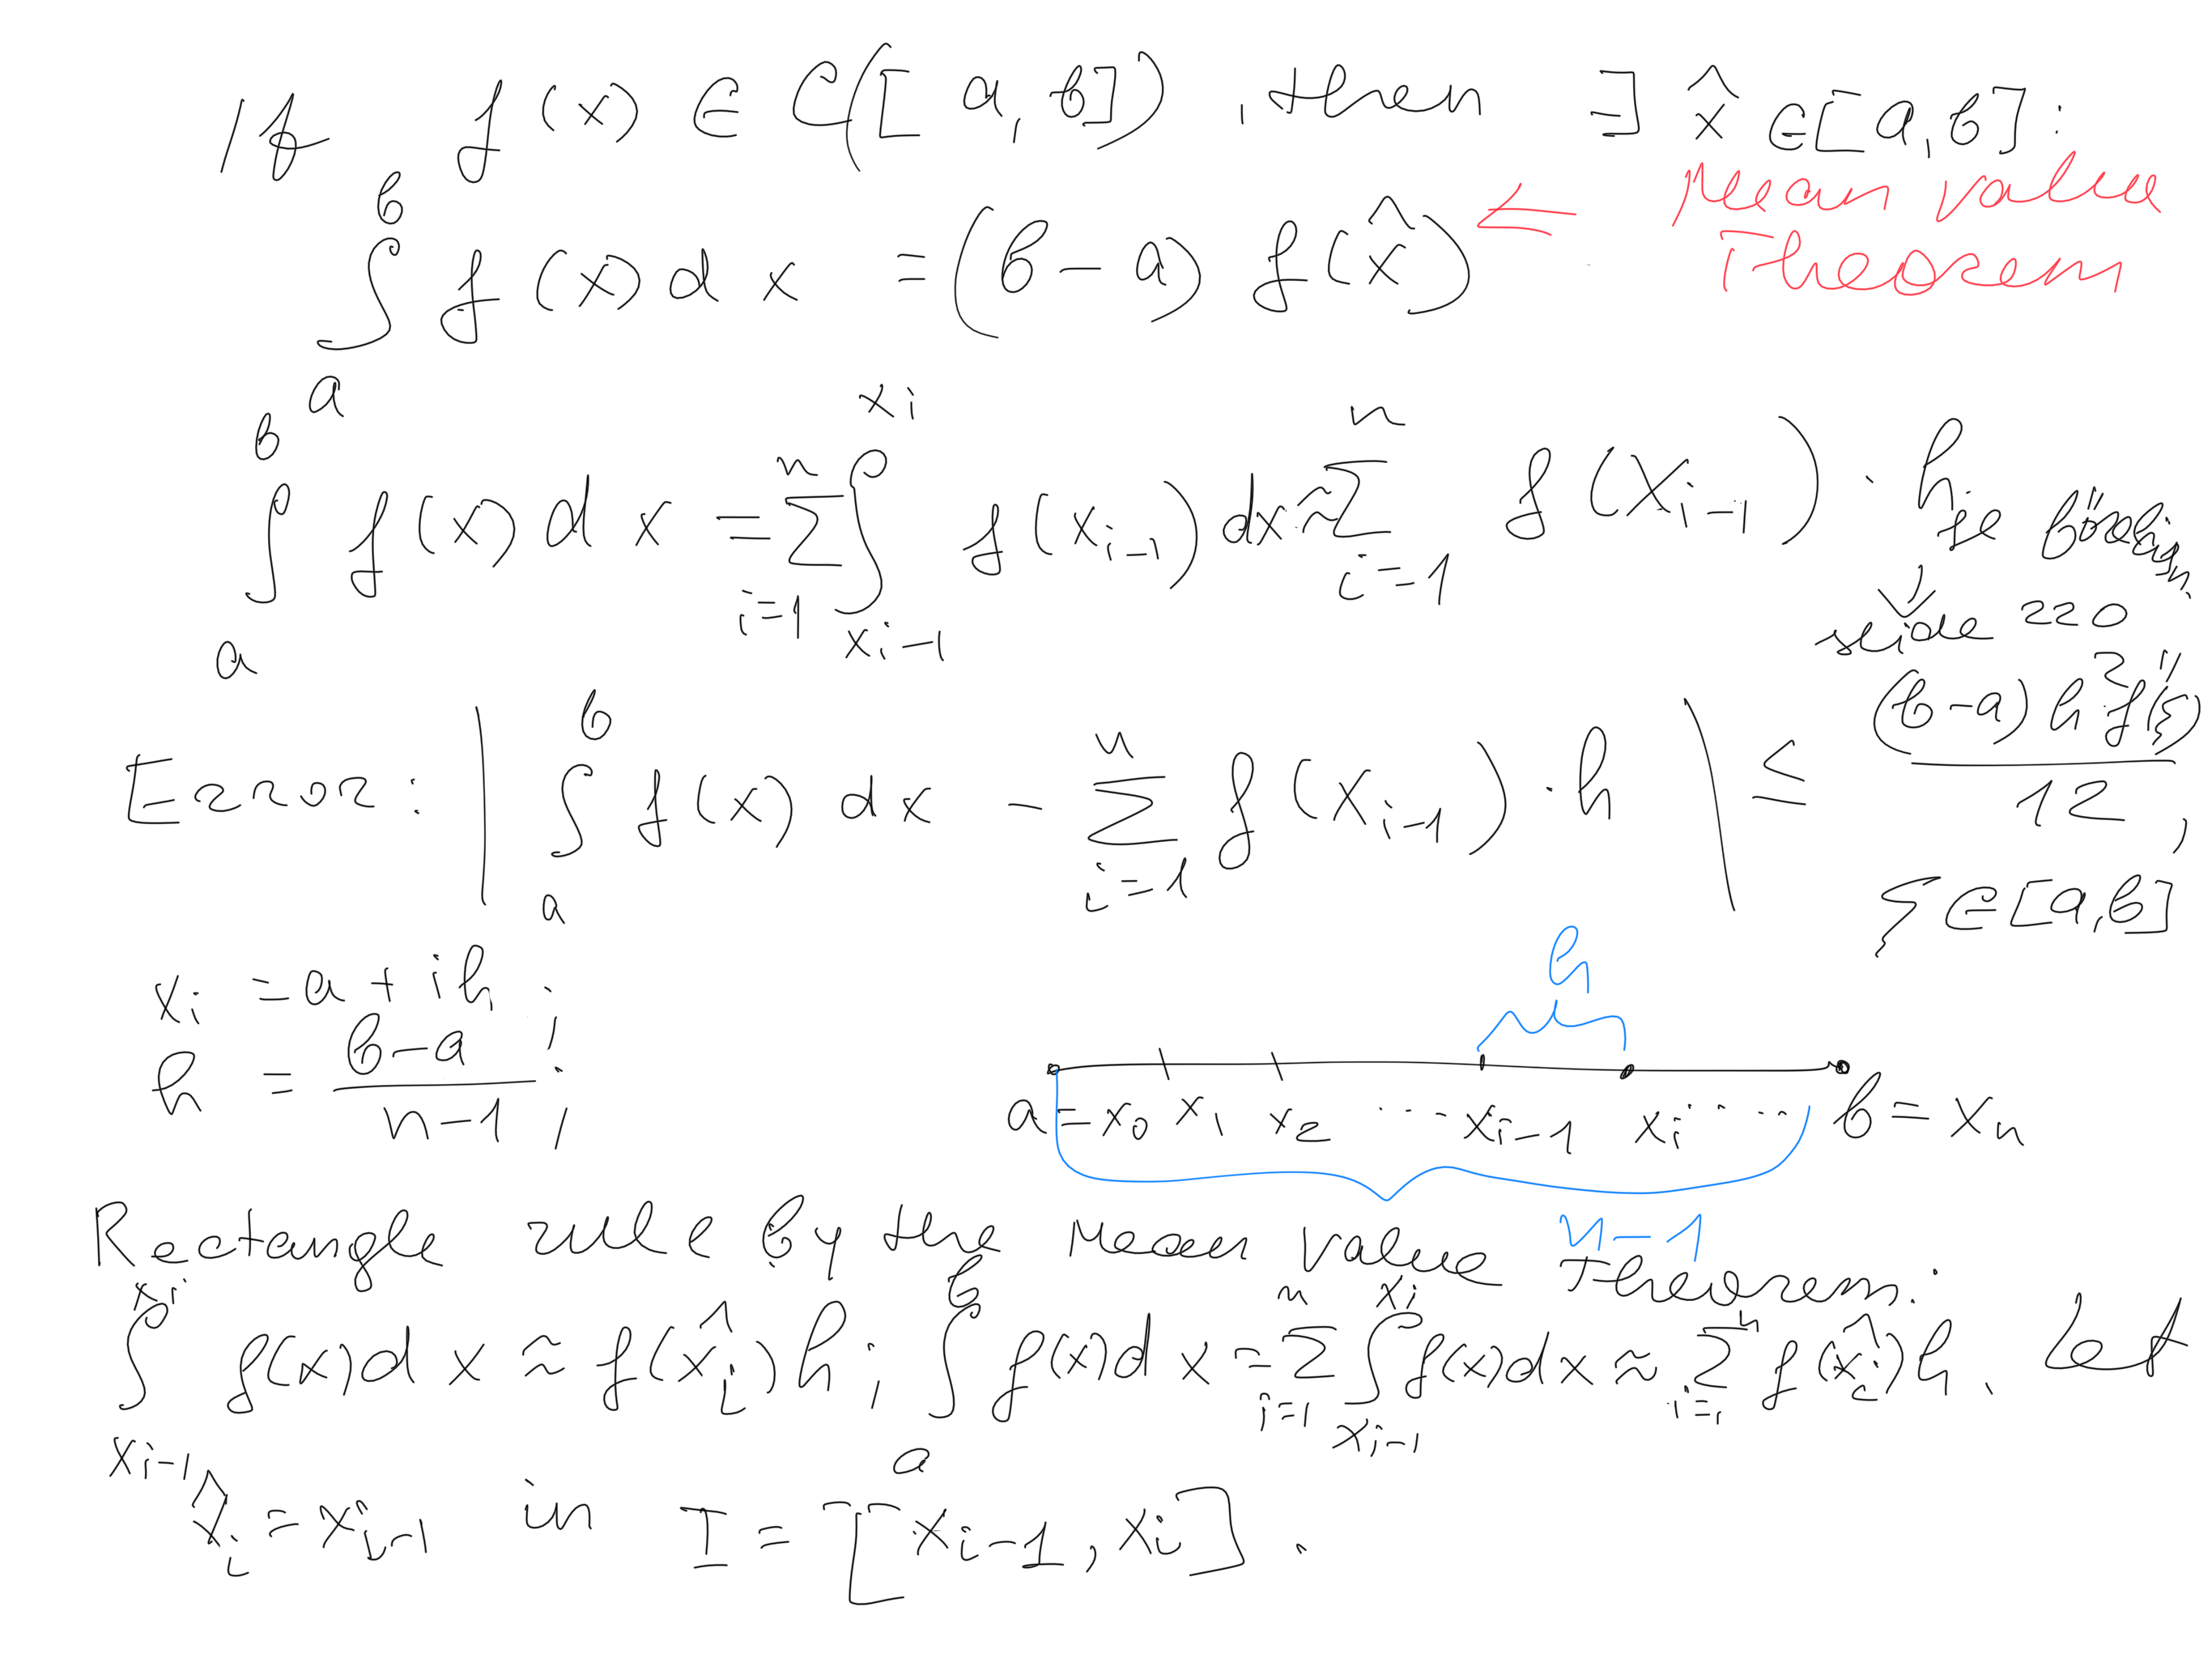 If f(x) ∈ C([a, b]), then ∃ x̂ ∈ [a, b]:
∫_a^b f(x) dx = (b - a) f(x̂) ← Mean value Theorem
∫_a^b f(x) dx = Σ_{i=1}^n ∫_{x_{i-1}}^{x_i} f(x_{i-1}) dx ≈ Σ_{i=1}^n f(x_{i-1}) · h.
se
↓ slide 220
Error: | ∫_a^b f(x) dx - Σ_{i=1}^n f(x_{i-1}) · h | ≤ (b-a) h² f''(ξ) / 12,
ξ ∈ [a, b]
x_i = a + ih;
h = (b-a) / (n-1);
h
a = x_0 x_1 x_2 ... x_{i-1} x_i ... b = x_n
n-1
Rectangle rule by the Mean value Theorem:
∫_{x_{i-1}}^{x_i} f(x) dx ≈ f(x̂_i) h; ∫_a^b f(x) dx = Σ_{i=1}^n ∫_{x_{i-1}}^{x_i} f(x) dx ≈ Σ_{i=1}^n f(x̂_i) h. Let
x̂_i = x_{i-1} in I = [x_{i-1}, x_i].